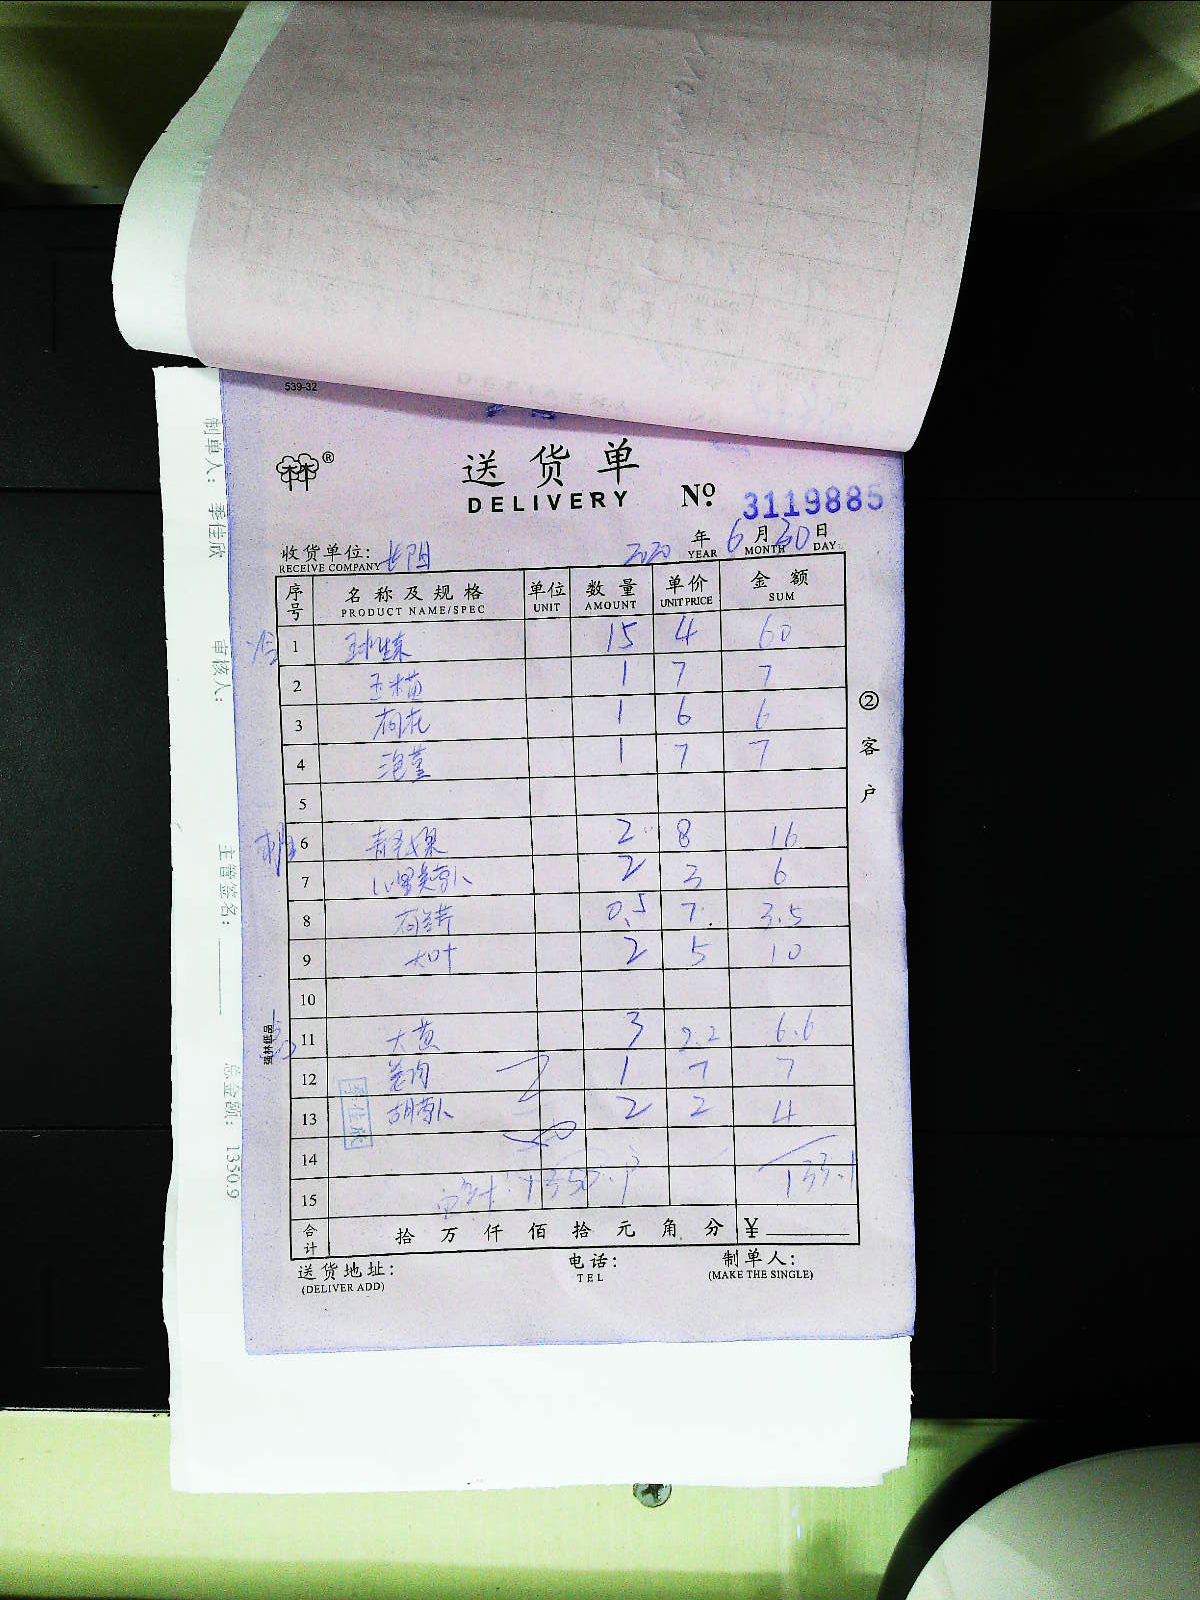 539-32
林®
送货单
DELIVERY
№ 3119885
收货单位: 长阳
RECEIVE COMPANY
2020 年 6 月 30 日
YEAR MONTH DAY
序号 名称及规格 单位 数量 单价 金额
PRODUCT NAME/SPEC UNIT AMOUNT UNIT PRICE SUM
1 球生菜 15 4 60
2 1 7 7
3 1 6 6
4 1 7 7
5
6 2 8 16
7 2 3 6
8 0.5 7 3.5
9 大叶 2 5 10
10
11 大黄 3 2.2 6.6
12 1 7 7
13 胡萝卜 2 2 4
14
15 133.1
合计 拾 万 仟 佰 拾 元 角 分 ¥
送货地址:
(DELIVER ADD)
电话:
TEL
制单人:
(MAKE THE SINGLE)
②客户
强林纸品
李佳欣
制单人: 李佳欣
审核人:
主管签名:
总金额: 1350.9